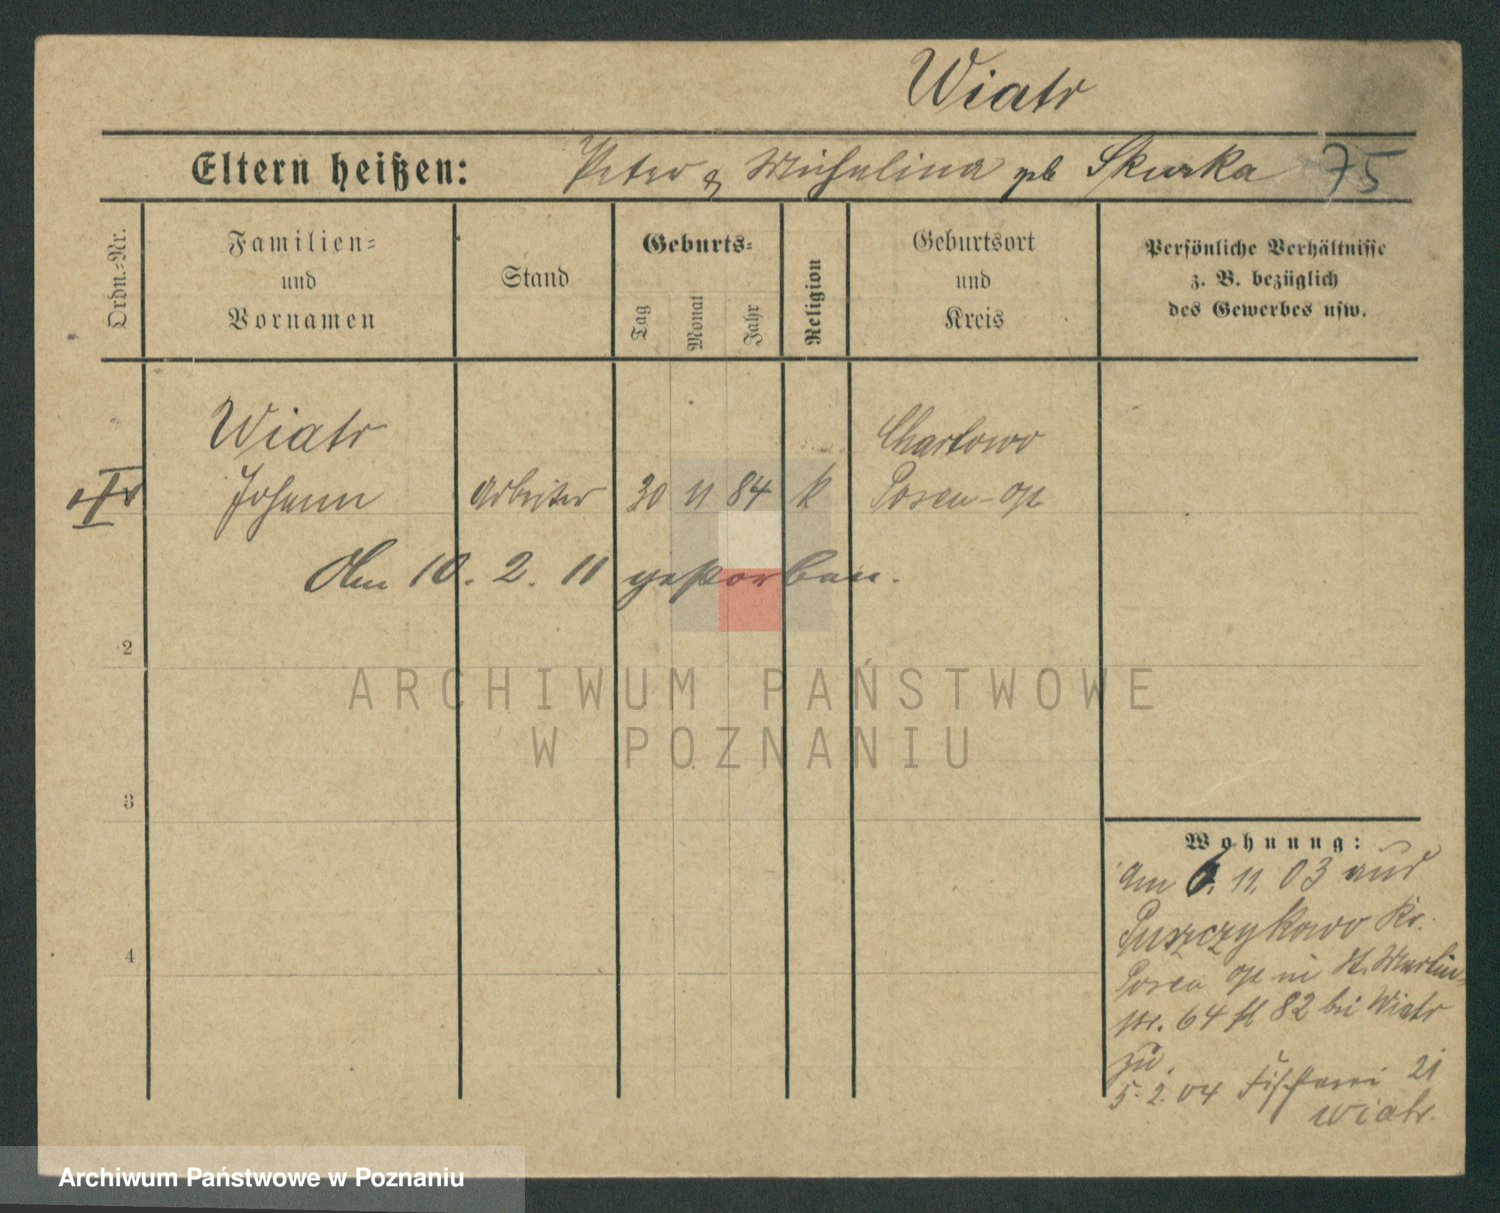 Wiatr
Eltern heißen: Peter & Michalina geb Skurka 75
Ordn.=Nr.
Familien=
und
Vornamen
Stand
Geburts=
Tag
Monat
Jahr
Religion
Geburtsort
und
Kreis
Persönliche Verhältnisse
z. B. bezüglich
des Gewerbes usw.
Wiatr
Johann Arbeiter 30 11 84 k
Chartowo
Posen-Ost
Am 10. 2. 11 gestorben.
2
ARCHIWUM PAŃSTWOWE
W POZNANIU
3
4
Wohnung:
Am 6. 11. 03 aus
Puszczykowo Kr.
Posen in St. Martin-
str. 64 82 bei Wiatr
zu.
5. 2. 04 Fischerei 21
Wiatr.
Archiwum Państwowe w Poznaniu